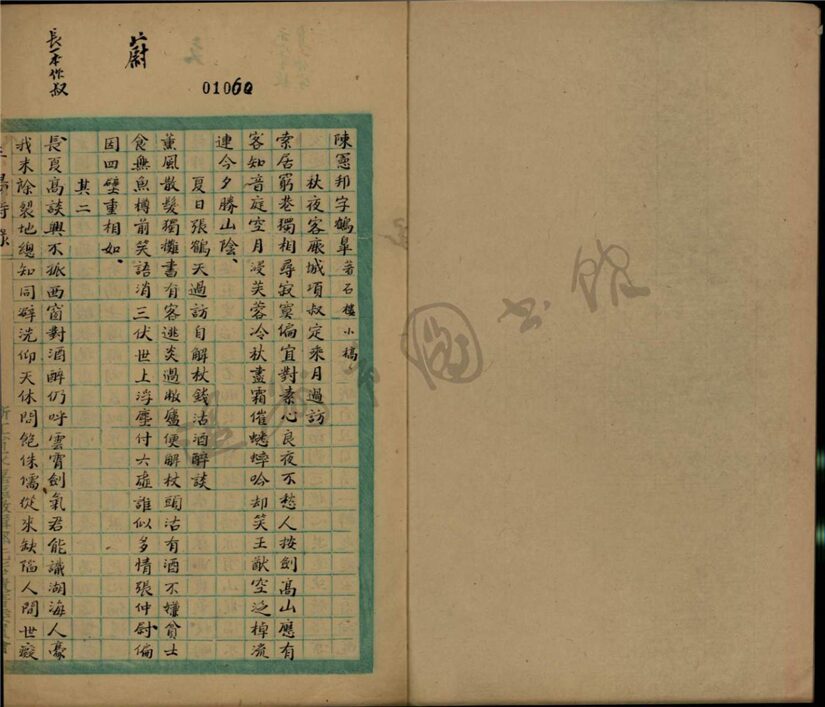 蔚
長一本作叔
01060
陳憲邦字鶴皋 著石樓小稿
秋夜客廠城項叔定来月過訪
索居窮巷獨相尋寂寞偏宜對素心良夜不愁人按劍高山應有
客知音庭空月浸芙蓉冷秋盡霜催蟋蟀吟却笑王猷空泛棹流
連今夕勝山陰、
夏日張鶴天過訪自解杖錢沽酒醉談
薰風散髮獨攤書有客逃炎過敝廬便解杖頭沽有酒不嫌貧士
食無魚樽前笑語消三伏世上浮塵付六虛誰似多情張仲尉偏
因四壁重相如、
其二
長夏高談興不孤西窗對酒醉仍呼雲霄劍氣君能識湖海人豪
我未除裂地總知同澼洸仰天休問飽侏儒從来缺陷人間世癡